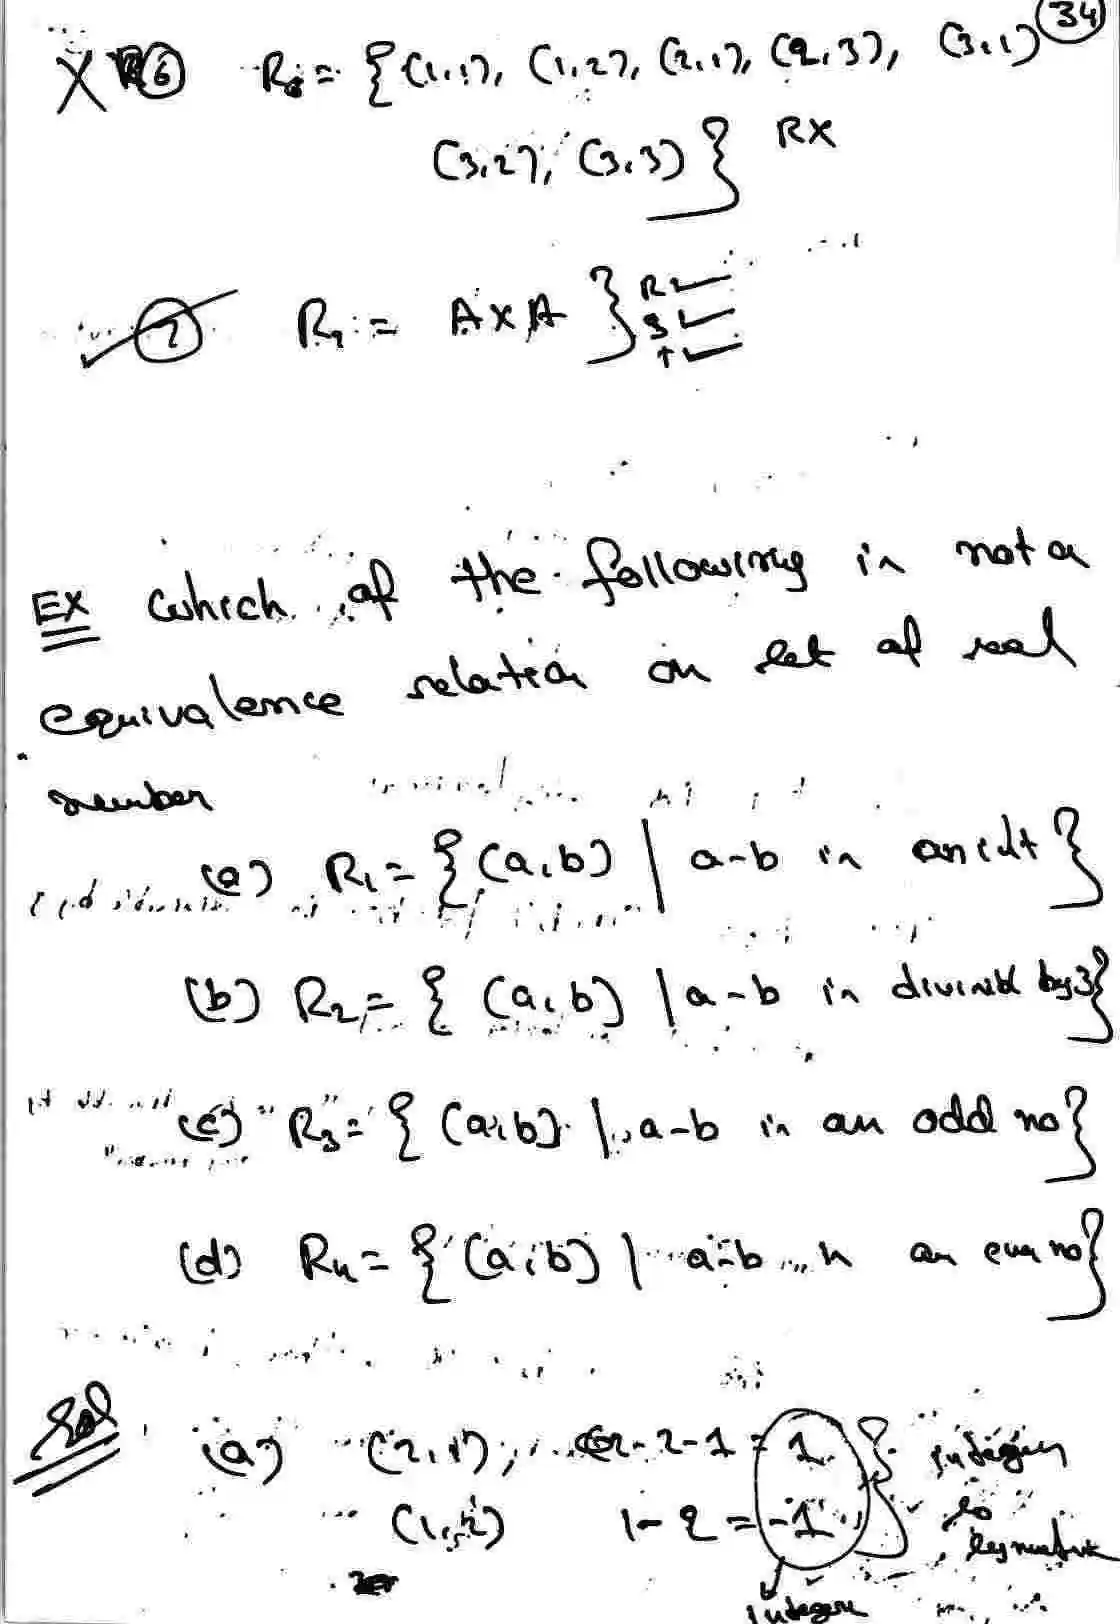 34
X 6 R6 = {(1,1), (1,2), (2,1), (2,3), (3,1)
(3,2), (3,3)} RX
7 R7 = A×A } R ✓
S ✓
T ✓
EX which of the following is not a
equivalence relation on set of real
number
(a) R1 = {(a,b) | a-b is an int}
(b) R2 = {(a,b) | a-b is divisible by 3}
(c) R3 = {(a,b) | a-b is an odd no}
(d) R4 = {(a,b) | a-b is an even no}
Sol (a) (2,1), 2-1 = 1 } integer
(1,2) 1-2 = -1 so
symmetric
integers